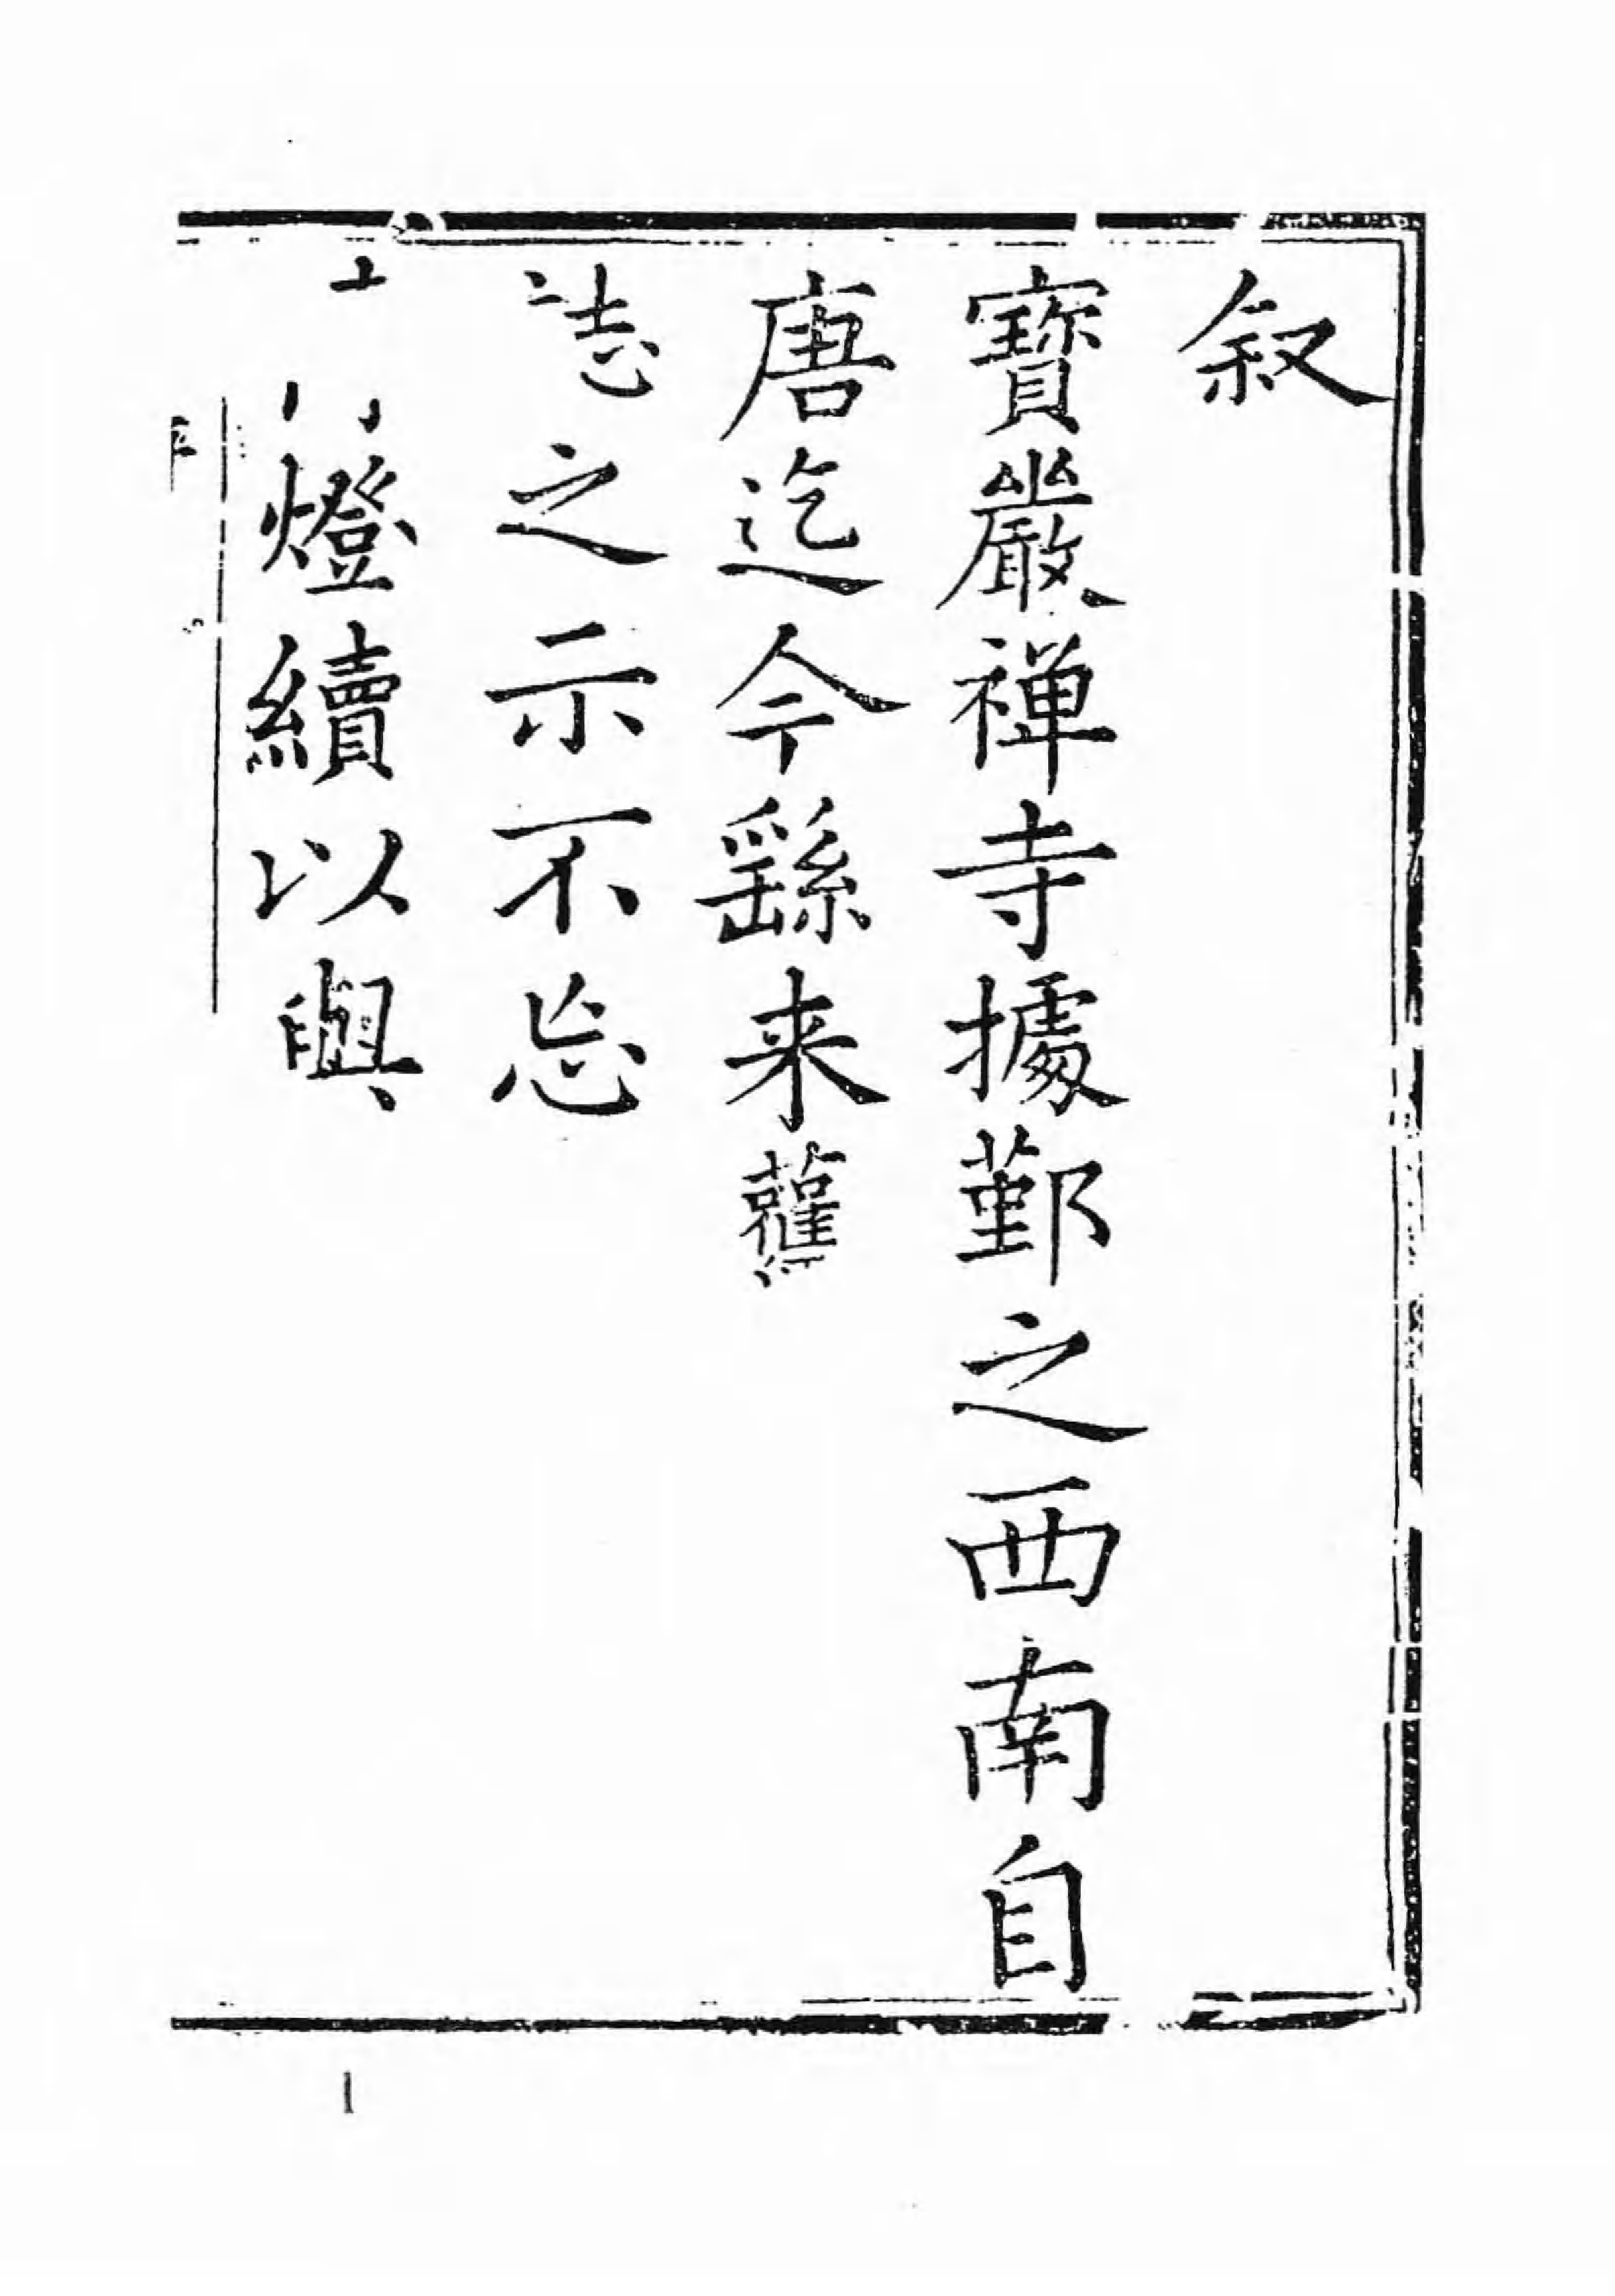 叙
寶巖禅寺據鄞之西南自
唐迄今繇来舊
誌之示不忘
燈續以與
1